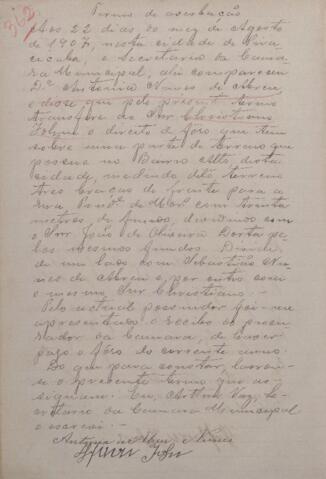 362
Termo de averbação
Aos 22 dias do mez de Agosto
de 1907, nesta cidade de Pira
cicaba, e Secretaria da Cama
ra Municipal, ahi compareceu
Dª Antonia Nunes de Abreu,
e disse que pelo presente termo
transfere ao Snr Christiano
o direito e fôro que tem
sobre uma parte de terreno que
possue no Bairro Alto, desta
cidade, medindo dito terreno
tres braças de frente para a
rua Prudte de Mores com trinta
metros de fundo, dividindo com
o Snr João de Oliveira Dorta pe
los mesmos fundos
de um lado com Sebastião Nu
nes de Abreu e por outro com
o mesmo Snr Christiano.
Pelo actual possuidor foi-me
apresentado o recibo do procu
rador da Camara, de haver
pago o fôro do corrente anno.
Do que para constar, lavrou-
se o presente termo que as-
signam. Eu, Arthur Vaz, Se-
cretario da Camara Municipal
o escrevi.
Antonia de Nunes